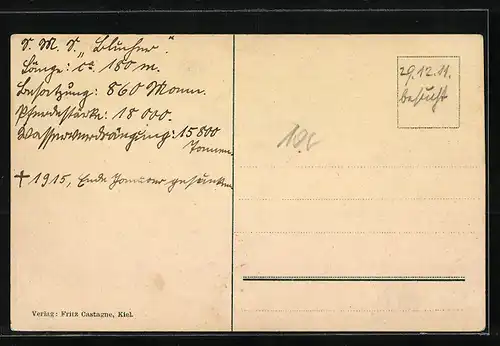 S. M. S. „Blücher".
Länge: ca. 180 m.
Besatzung: 860 Mann.
Pferdestärke: 18 000.
Wasserverdrängung: 15800
Tonnen.
† 1915, Ende Januar gesunken
29.12.11.
besucht
Verlag: Fritz Castagne, Kiel.